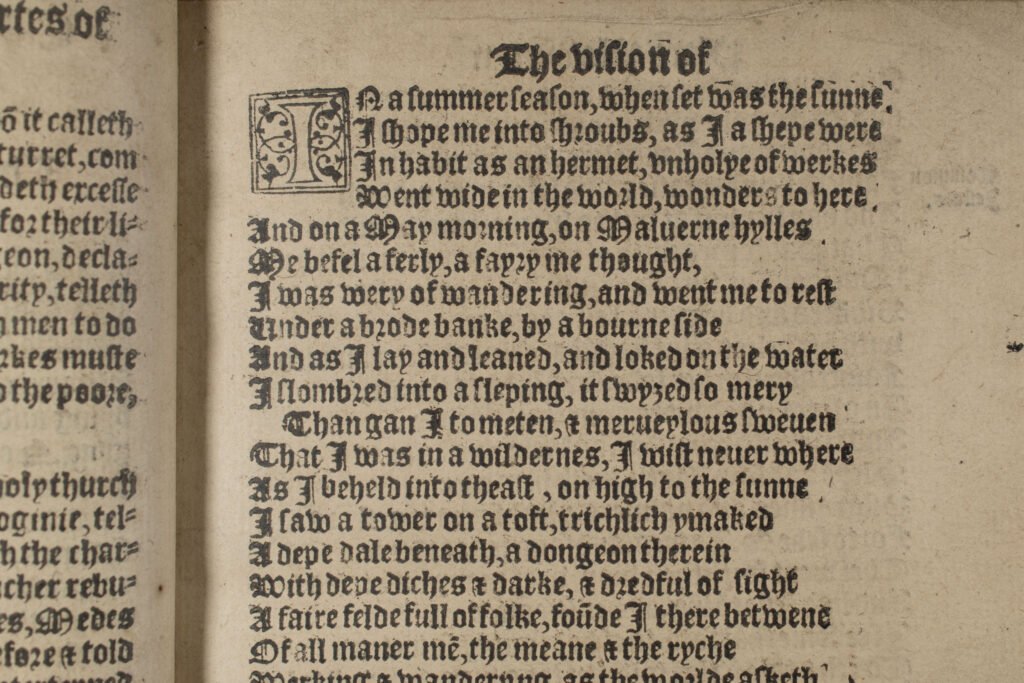 rtes of
ō it calleth
turret, com
deth excelle
for their li⸗
geon, decla⸗
rity, telleth
men to do
rkes muste
o the poore,
holy church
oginie, tel⸗
h the char⸗
cher rebu⸗
es, Medes
efore & told
The vision of
IN a summer season, when set was the sunne,
I shope me into shroubs, as I a shepe were
In habit as an hermet, vnholye of werkes
Went wide in the world, wonders to here.
And on a May morning, on Maluerne hylles
Me befel a ferly, a fayry me thought,
I was wery of wandering, and went me to rest
Under a brode banke, by a bourne side
And as I lay and leaned, and loked on the water
I slombred into a sleping, it swyzed so mery
Than gan I to meten, a merueylous sweuen
That I was in a wildernes, I wist neuer where
As I beheld into theast, on high to the sunne
I saw a tower on a toft, trichlich ymaked
A depe dale beneath, a dongeon therein
With depe diches & darke, & dredful of sight
A faire felde full of folke, foūde I there betwene
Of all maner mē, the meane & the ryche
Werking & wandering, as the worlde asketh